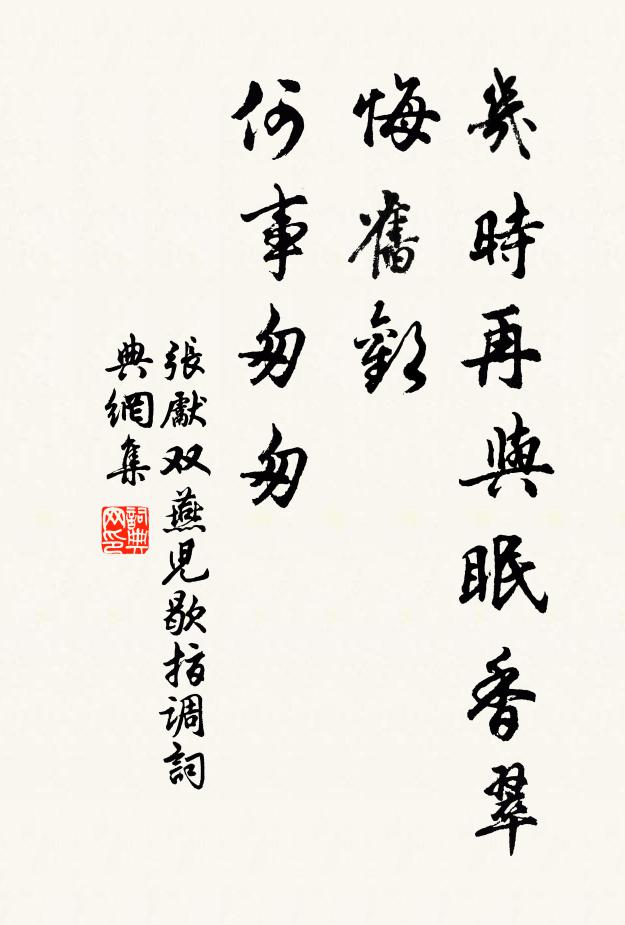 幾時再與眠香翠
悔舊歡
何事匆匆
張獻双燕児歇指调詞
典網集
詞典网印